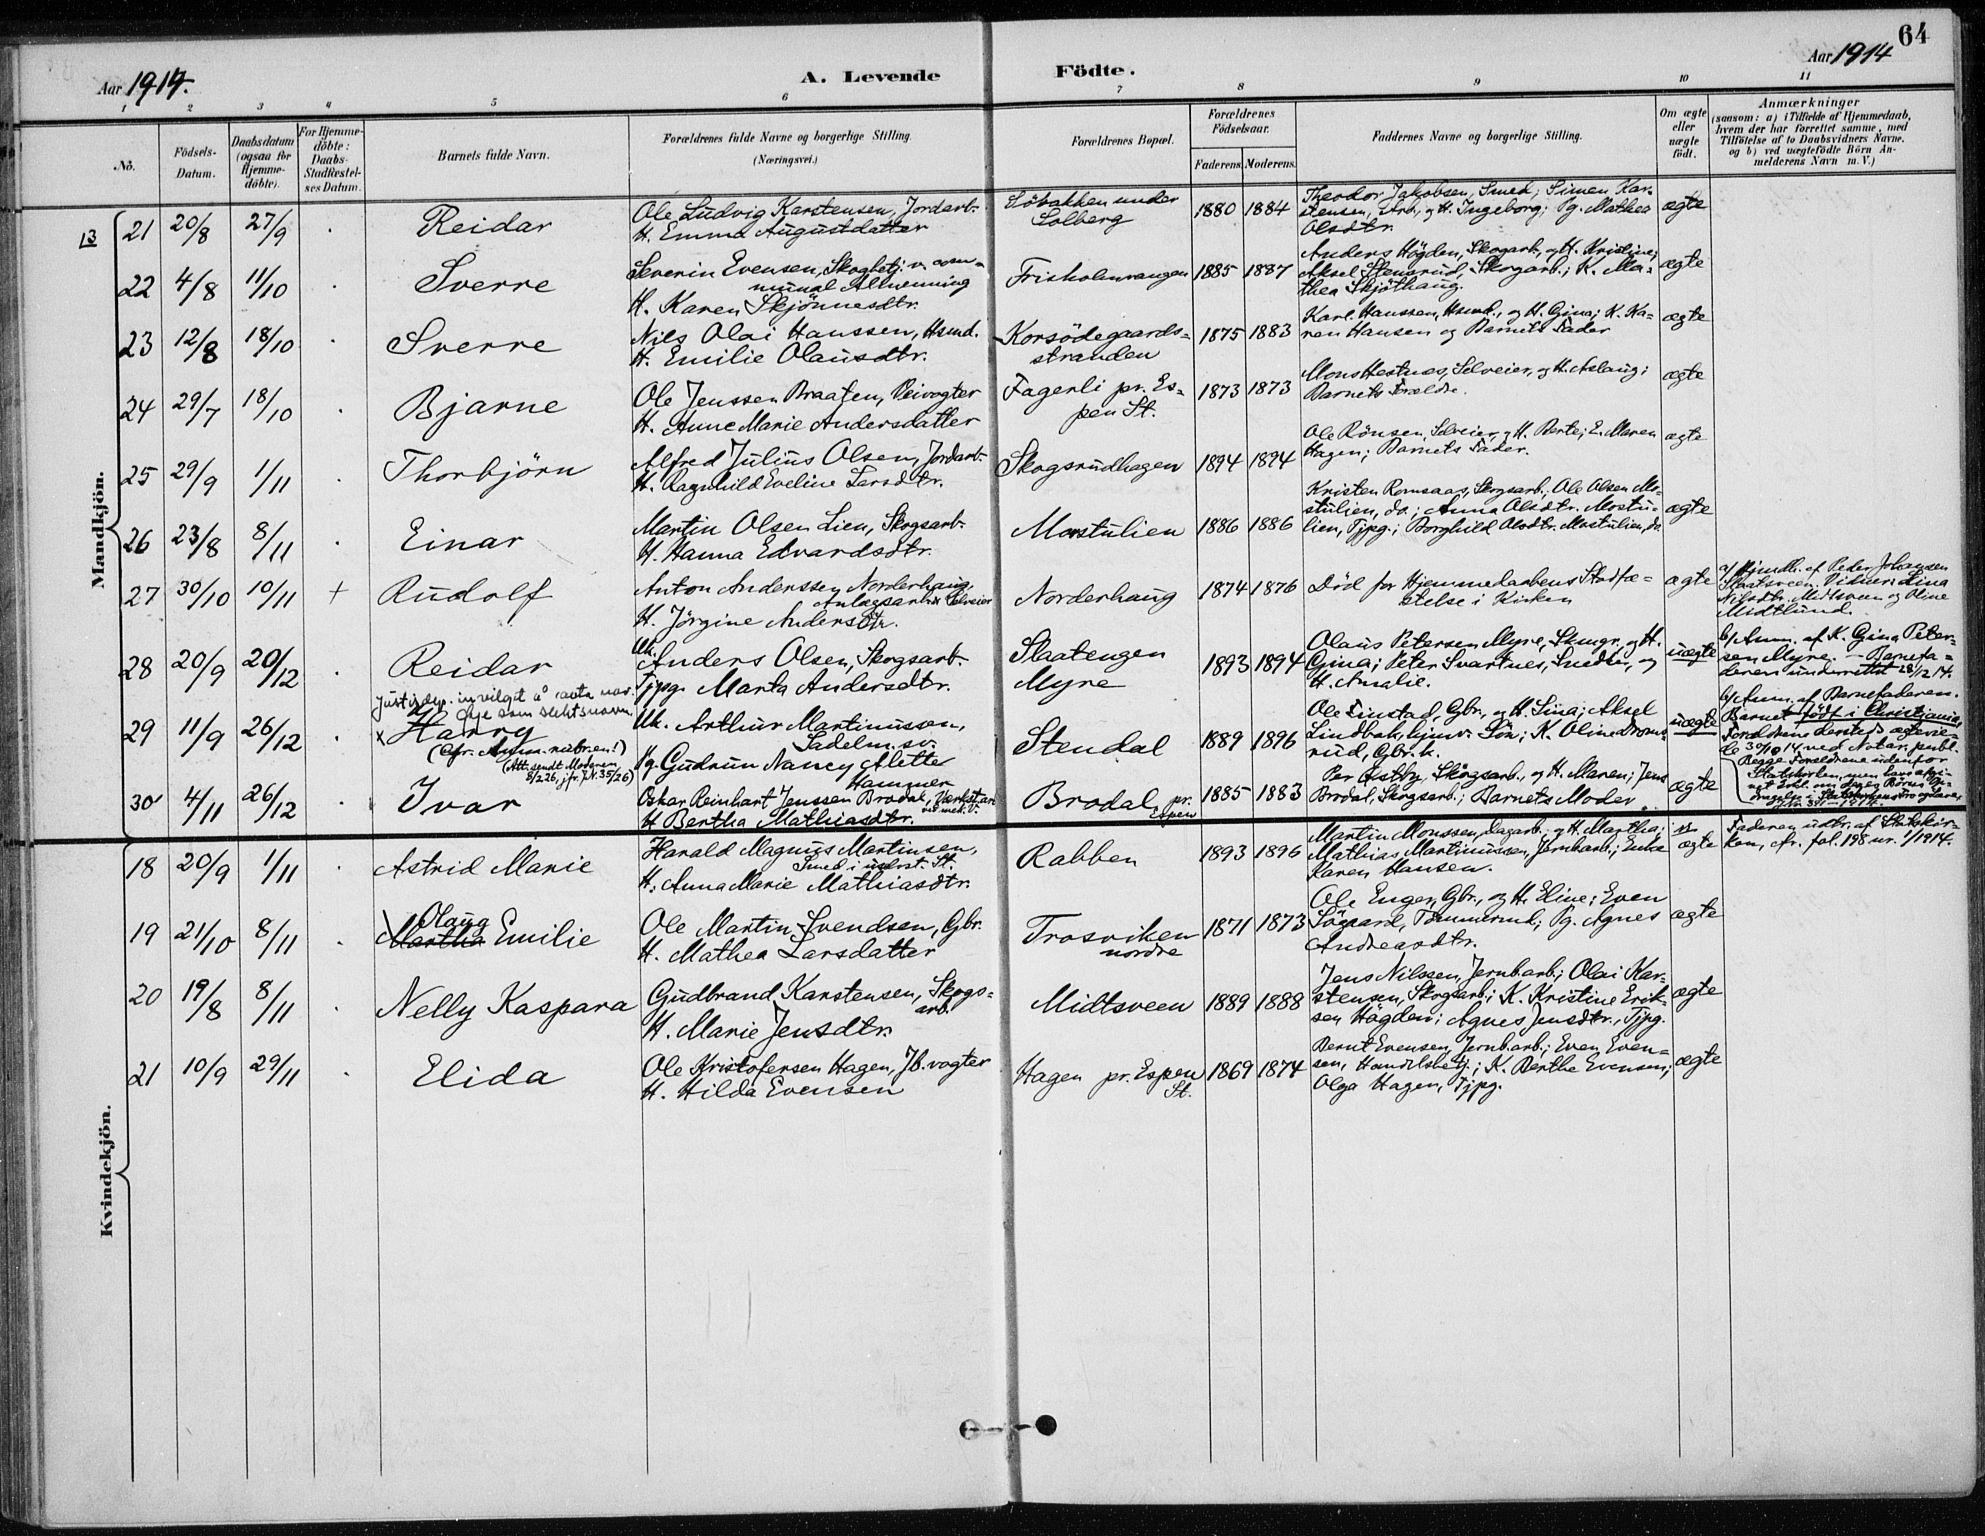 64
Aar 1914.
A. Levende Födte.
Aar 1914
1 2 3 4 5 6 7 8 9 10 11
No.
Födsels-Datum.
Daabsdatum (ogsaa for Hjemme-döbte).
For Hjemme-döbte: Daabs-Stadfæstel-ses Datum.
Barnets fulde Navn.
Forældrenes fulde Navne og borgerlige Stilling.
(Næringsvei.)
Forældrenes Bopæl.
Forældrenes Födselsaar.
Faderens. Moderens.
Faddernes Navne og borgerlige Stilling.
Om ægte eller uægte födt.
Anmærkninger
(saasom: a) i Tilfælde af Hjemmedaab,
hvem der har forrettet samme, med
Tilföielse af to Daabsvidners Navne,
og b) ved uægtefödte Börn An-
melderens Navn m. V.)
Mandkjön.
13
21 20/8 27/9 Reidar
Ole Ludvig Karstensen, Jordarb.
H. Emma Augustdatter
Löbakken under
Solberg
1880 1884
Theodor Jakobsen, Smed; Simen Kar-
stensen, Arb., og H. Ingeborg; Pg. Mathea
Olsdtr.
ægte
22 4/8 11/10 Sverre
Severin Evensen, Skogbetj. v. com-
munal Almenning
H. Karen Skjönnesdtr.
Frisholmvangen
1885 1887
Anders Högden, Skogarb., og H. Kristine;
Aksel Stensrud, Skogarb.; K. Ma-
thea Skjöthaug.
ægte
23 12/8 18/10 Sverre
Nils Olai Hanssen, Hsmd.
H. Emilie Olausdtr.
Korsödegaards-
stranden
1875 1883
Karl Hanssen, Hsmd., og H. Gina; K. Ka-
ren Hansen og Barnets Fader
ægte
24 29/7 18/10 Bjarne
Ole Jenssen Braaten, Veivogter
H. Anne Marie Andersdatter
Fagerli pr. Es-
pen St.
1873 1873
Mons Hestnes, Selveier, og H. Aslaug;
Barnets Forældre.
ægte
25 29/9 1/11 Thorbjörn
Alfred Julius Olsen, Jordarb.
H. Ragnhild Eveline Larsdtr.
Skogsrudhagen
1894 1894
Ole Rönsen, Selveier, og H. Berte; E. Maren
Hagen; Barnets Fader.
ægte
26 23/8 8/11 Einar
Martin Olsen Lien, Skogsarb.
H. Hanna Edvardsdtr.
Mostulien
1886 1886
Kristen Romsaas, Skogsarb.; Ole Olsen Mo-
stulien, do.; Anna Olsdtr. Mostu-
lien, Tjpg.; Borghild Olsdtr. Mostulien, do.
ægte
27 30/10 10/11 + Rudolf
Anton Anderssen Norderhaug,
Anlægsarb. & Selveier
H. Jörgine Andersdtr.
Norderhaug
1874 1876
Död för Hjemmedaabens Stadfæ-
stelse i Kirken
ægte
a/ Hjmdb. af Peder Johansen
Vidner: Lina
Nilsdtr. Midtsveen og Oline
Midtlund.
28 20/9 20/12 Reidar
Uk.
Anders Olsen, Skogsarb.
Tjpg. Marta Andersdtr.
Slaatengen
Myre
1893 1894
Olaus Petersen Myre, Skmgr., og H.
Gina; Peter Svartnes, Snedker, og
H. Amalie.
uægte
b/ Anm. af K. Gina Peter-
sen Myre. — Barnefa-
deren underrettet 28/12 14.
29 11/9 26/12
Justisdep. innvilget å anta nav.
Gje som slektsnavn.
x Harry
(Cfr. Anm. rubr. en!)
(Att. sendt Moderen
8/2 26, jfr. J.N. 35/26)
Uk. Arthur Martinussen,
Sadelm. sv.
Pg. Gudrun Nancy Alette
Hamner
Stendal
1889 1896
Ole Linstad, Gbr., og H. Lina; Aksel
Lindbak, hjmv. Sön; K. Oline
rud, Gbr. k.
uægte
b/ Anm. af Barnefaderen.
Barnet födt i Christiania.
Forældrene dersteds ægtevie-
de 30/10 14 ved Notar. publ.
Begge Forældrene udenfor
Statskirken,
30 4/11 26/12 Ivar
Oskar Reinhart Jenssen Brodal, Værkst.arb.
H Bertha Mathiasdtr.
Brodal, pr.
Espen
1885 1883
Per Østby, Skogsarb., og H. Maren; Jens
Brodal, Skogsarb.; Barnets Moder.
ægte
Kvindekjön.
18 20/9 1/11 Astrid Marie
Harald Magnus Martinsen,
Smed i underst. St.
H. Anna Marie Mathiasdtr.
Rabben
1893 1896
Martin Monssen, Dagarb., og H. Martha;
Mathias Martinussen, Jernbarb.; Enke
Karen Hansen.
ægte
Faderen udtr. af Statskir-
ken, cfr. fol. 198 nr. 1/1914.
19 21/10 8/11
Olaug
Martha Emilie
Ole Martin Svendsen, Gbr.
H. Mathea Larsdatter
Trosviken
nordre
1871 1873
Ole Enger, Gbr., og H. Eline; Even
Sögaard, Tömmermd.; Pg. Agnes
Andreasdtr.
ægte
20 19/8 8/11 Nelly Kaspara
Gudbrand Karstensen, Skogs-
arb.
H. Marie Jensdtr.
Midtsveen
1889 1888
Jens Nilssen, Jernb.arb.; Olai Kar-
stensen, Skogsarb.; K. Kristine Erik-
sen Högden; Agnes Jensdtr., Tjpg.
ægte
21 10/9 29/11 Elida
Ole Kristofersen Hagen, Jb. vogter
H. Hilda Evensen
Hagen pr. Espen
St.
1869 1874
Bernt Evensen, Jernb.arb.; Even Even-
sen, Handelsbetj.; K. Berthe Evensen;
Olga Hagen, Tjpg.
ægte